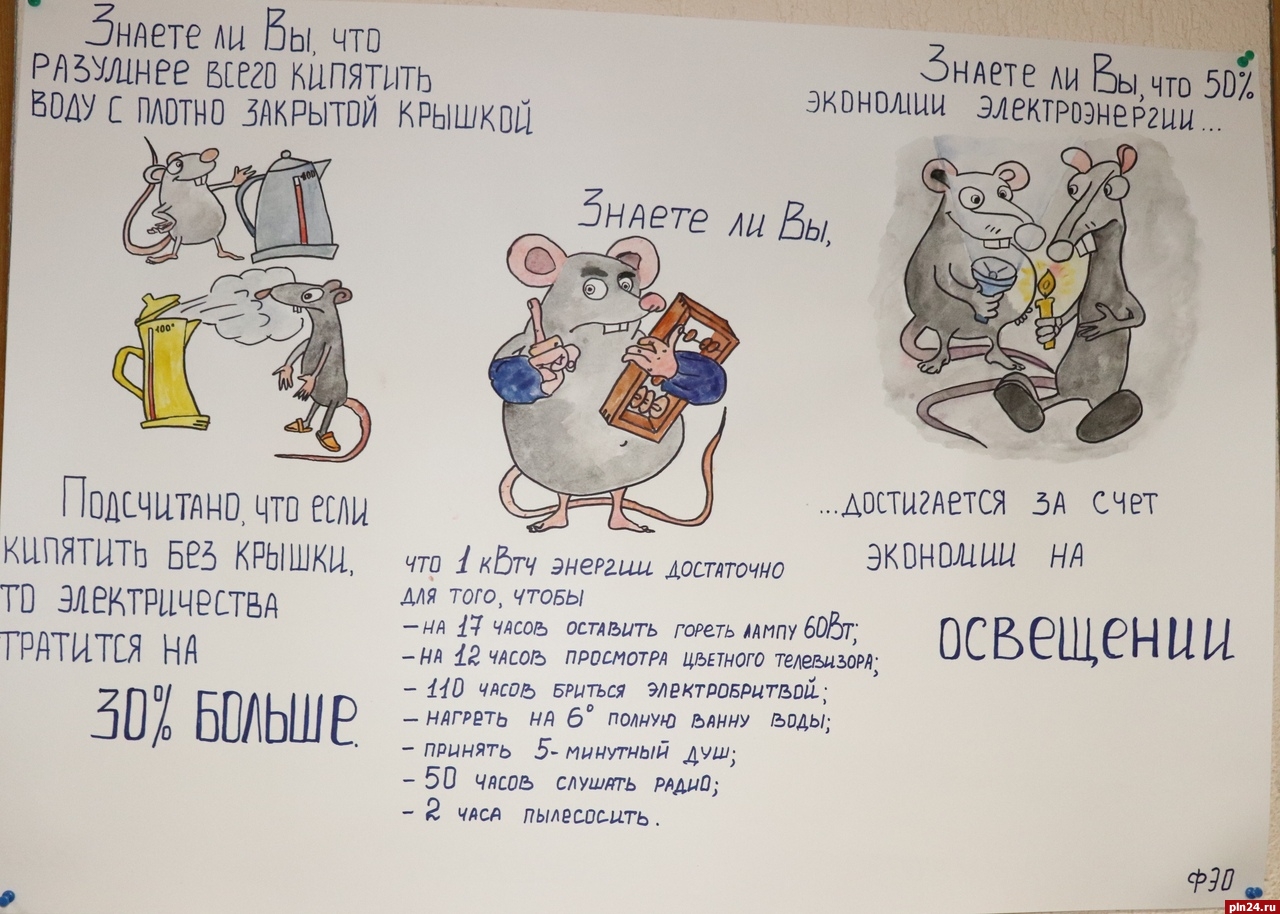 Знаете ли Вы, что
разумнее всего кипятить
воду с плотно закрытой крышкой
100°
100°
Подсчитано, что если
кипятить без крышки,
то электричества
тратится на
30% больше.
Знаете ли Вы,
что 1 кВтч энергии достаточно
для того, чтобы
– на 17 часов оставить гореть лампу 60Вт;
– на 12 часов просмотра цветного телевизора;
– 110 часов бриться электробритвой;
– нагреть на 6° полную ванну воды;
– принять 5-минутный душ;
– 50 часов слушать радио;
– 2 часа пылесосить.
Знаете ли Вы, что 50%
экономии электроэнергии...
...достигается за счет
экономии на
освещении
ФЭО
pln24.ru